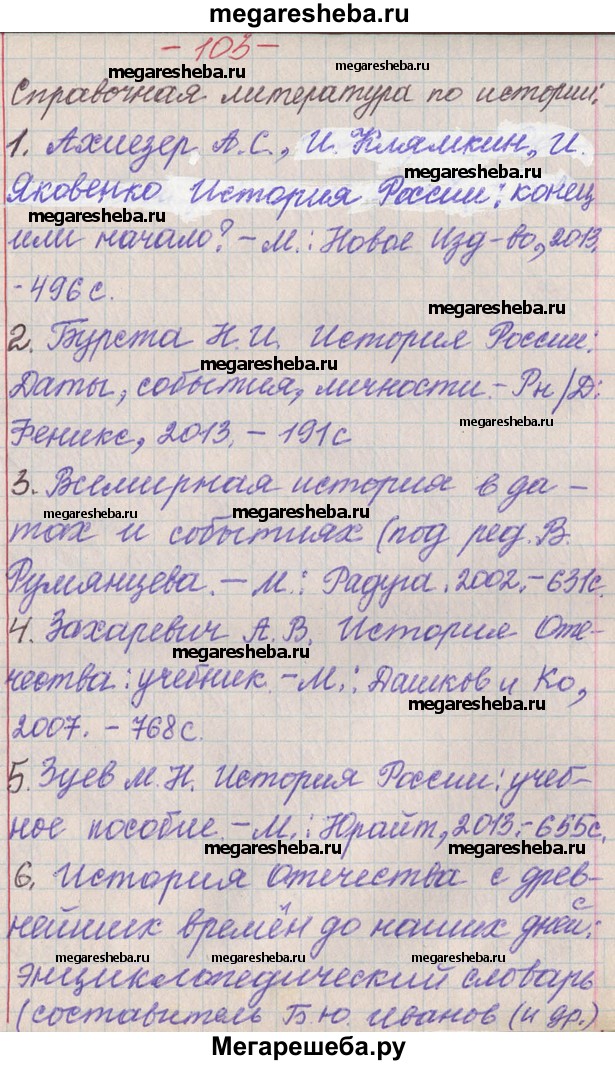 megaresheba.ru
- 103 -
megaresheba.ru
megaresheba.ru
Справочная литература по истории:
1. Ахиезер А.С., И. Клямкин, И.
Яковенко История России: конец
megaresheba.ru
megaresheba.ru
или начало? - М.: Новое Изд-во, 2013.
- 496 с.
megaresheba.ru
2. Бурета Н.И. История России:
megaresheba.ru
Даты, события, личности. - Рн/Д:
megaresheba.ru
Феникс, 2013. - 191 с
3. Всемирная история в да-
megaresheba.ru
megaresheba.ru
тах и событиях (под ред. В.
Румянцева. - М.: Радуга. 2002. - 631с.
4. Захаревич А.В. История Оте-
megaresheba.ru
чества: учебник - М.: Дашков и Ко,
megaresheba.ru
2007. - 768 с.
5. Зуев М.Н. История России: учеб-
ное пособие. - М.: Юрайт, 2013. - 655с.
megaresheba.ru
megaresheba.ru
6. История Отечества с древ-
нейших времён до наших дней:
с
megaresheba.ru
megaresheba.ru
megaresheba.ru
энциклопедический словарь
(составитель Б.Ю. Иванов (и др.)
Мегарешеба.ру